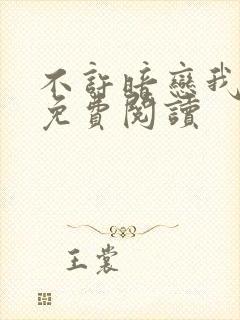 不許暗戀我
免費閱讀
王裳